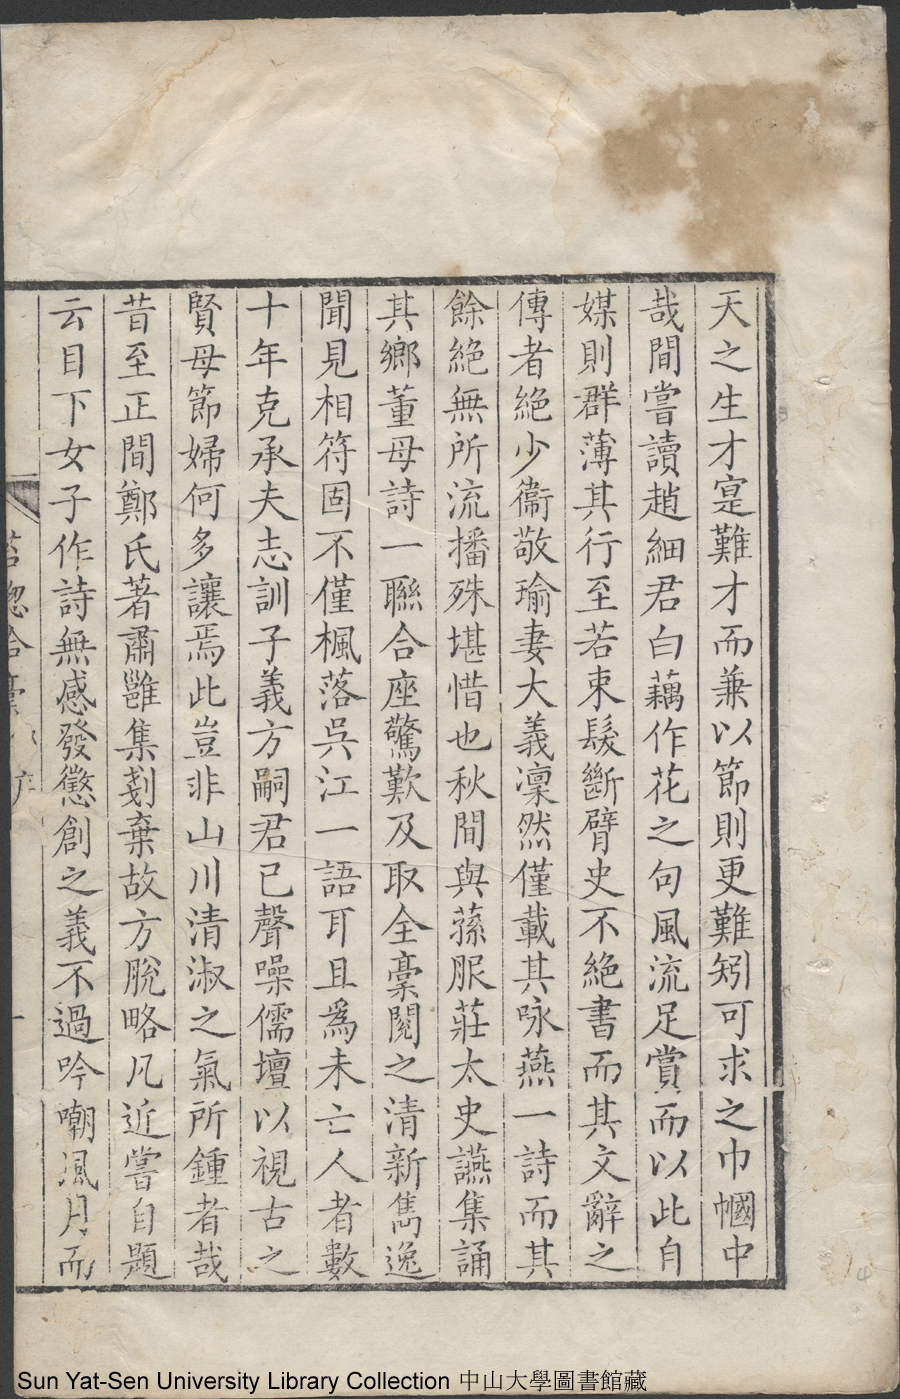 天之生才寔難才而兼以節則更難矧可求之巾幗中
哉間嘗讀趙細君白藕作花之句風流足賞而以此自
媒則群薄其行至若束髮斷臂史不絕書而其文辭之
傳者絕少衞敬瑜妻大義凜然僅載其咏燕一詩而其
餘絕無所流播殊堪惜也秋間與蓀服莊太史讌集誦
其鄉董母詩一聯合座驚歎及取全稾閱之清新雋逸
聞見相符固不僅楓落吳江一語耳且爲未亡人者數
十年克承夫志訓子義方嗣君已聲噪儒壇以視古之
賢母節婦何多讓焉此豈非山川清淑之氣所鍾者哉
昔至正間鄭氏著肅雝集剗棄故方脫略凡近嘗自題
云目下女子作詩無感發懲創之義不過吟嘲風月而
序
一
Sun Yat-Sen University Library Collection 中山大學圖書館藏